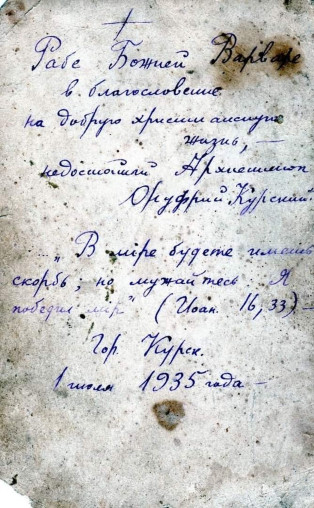 Рабе Божией Варваре
в благословение
на добрую христианскую
жизнь, —
недостойный Архиепископ
Онуфрий Курский.
„В мiре будете иметь
скорбь; но мужайтесь Я
победил мир" (Иоан. 16, 33) —
Гор. Курск.
1 июля 1935 года —